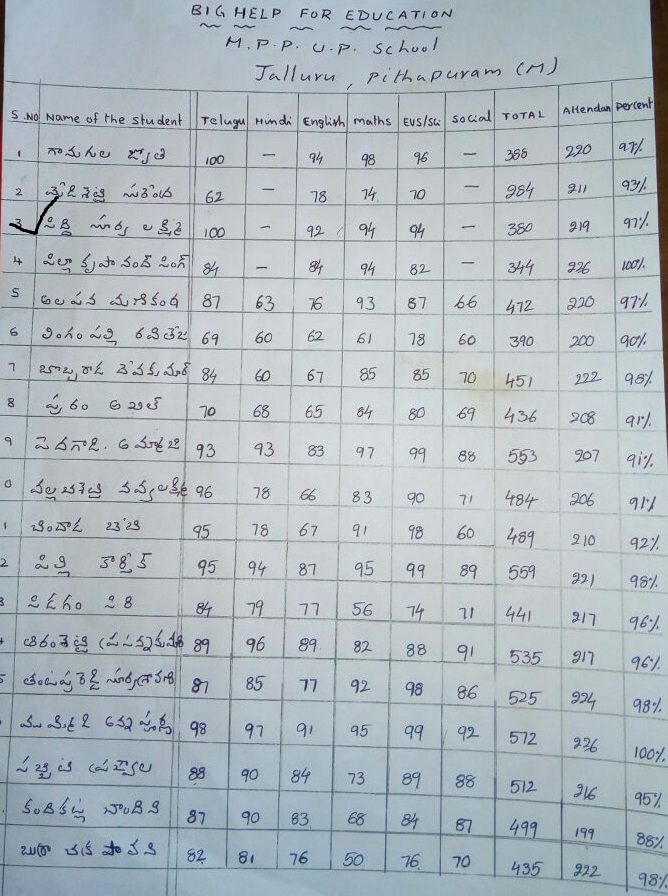 BIG HELP FOR EDUCATION
M.P.P. U.P. School
Jalluru, Pithapuram (M)
S.NO Name of the student Telugu Hindi English maths EVS/Sci Social TOTAL Attendan percent
1 గామగల జ్యోతి 100 — 94 98 96 — 388 220 97%
2 62 — 78 74 70 — 284 211 93%
3 సూర్య 100 — 92 94 94 — 380 219 97%
4 పిల్లా కృపానంద్ సింగ్ 84 — 84 94 82 — 344 226 100%
5 అలపన మణికంఠ 87 63 76 93 87 66 472 220 97%
6 లింగంపల్లి రవితేజ 69 60 62 61 78 60 390 200 90%
7 84 60 67 85 85 70 451 222 98%
8 అఖిల్ 70 68 65 84 80 69 436 208 91%
9 పెదగాడి. 93 93 83 97 99 88 553 207 91%
0 నవ్యలక్ష్మి 96 78 66 83 90 71 484 206 91%
1 చిందాడ బేబి 95 78 67 91 98 60 489 210 92%
2 పిల్లి కార్తీక్ 95 94 87 95 99 89 559 221 98%
3 పిడగం సిరి 84 79 77 56 74 71 441 217 96%
89 96 89 82 88 91 535 217 96%
5 87 85 77 92 98 86 525 224 98%
అన్నపూర్ణ 98 97 91 95 99 92 572 226 100%
88 90 84 73 89 88 512 216 95%
కందికట్ల చాందిని 87 90 83 68 84 87 499 199 88%
పావని 82 81 76 50 76 70 435 222 98%